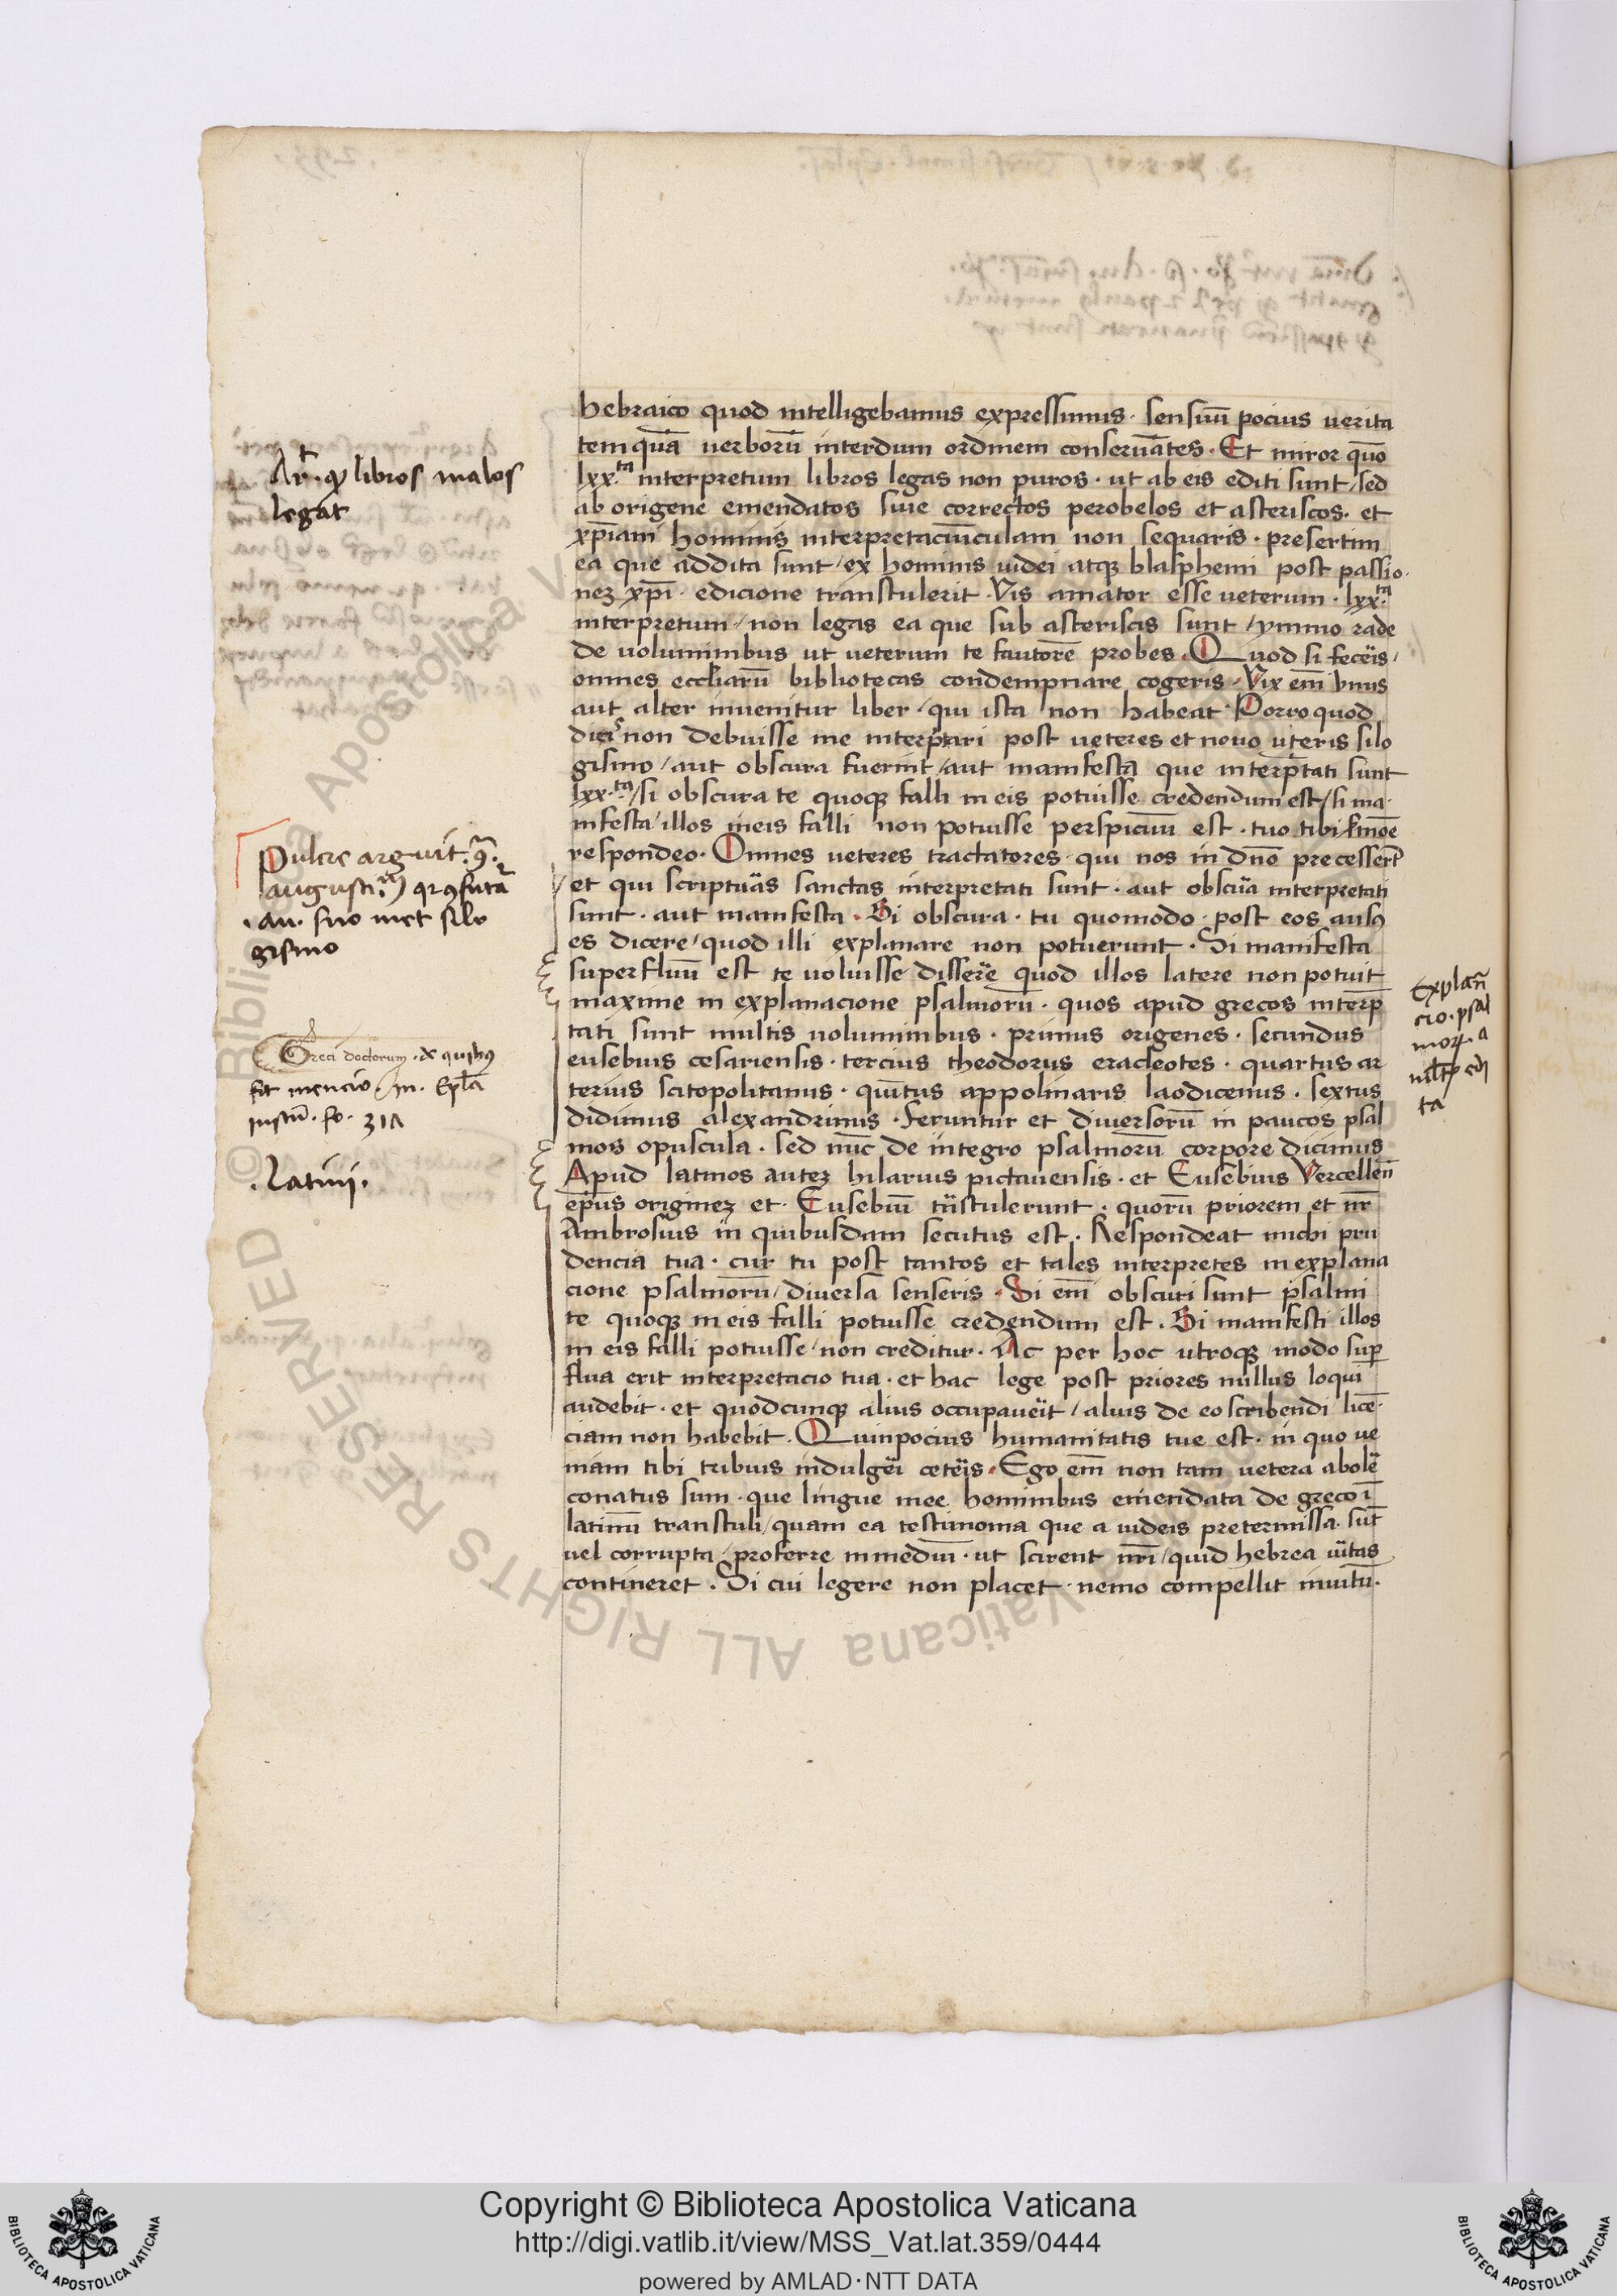 hebraico quod intelligebamus expressimus · sensuū pocius verita
tem quā verborū interdum ordinem conseruātes · Et miror quō
lxx.ta interpretum libros legas non puros · ut ab eis editi sunt / sed
ab origene emendatos siue correctos perobelos et asteriscos · et
xp̄iani hominis interpretaciūculam non sequaris · presertim
ea que addita sunt / ex hominis iudei atqꝫ blasphemi post passio
neꝫ xp̄i · edicione transtulerit · Vis amator esse ueterum · lxx.ta
interpretum / non legas ea que sub asteriscis sunt / ymmo rade
de voluminibus ut veterum te fautorē probes · Quod si fecer̄is /
omnes eccl̄iarū bibliotecas condempnare cogeris · Vix enī vnus
aut alter inuenitur liber · qui ista non habeat · Porro quod
dicis non debuisse me interp̄tari post veteres et nouo uteris silo
gismo / aut obscura fuerint / aut manifesta que interp̄tati sunt
lxx.ta / si obscura te quoqꝫ falli in eis potuisse credendum est / si ma
nifesta / illos ineis falli non potuisse perspicuū est · tuo tibi s̄mōe
respondeo · Omnes veteres tractatores · qui nos in dn̄o precessert̄
et qui scripturas sanctas interpretati sunt · aut obscura interpretati
sunt · aut manifesta · Si obscura · tu quomodo · post eos ausꝰ
es dicere / quod illi explanare non potuerunt · Si manifesta
superfluū est te voluisse dissere quod illos latere non potuit
maxime in explanacione psalmorū · quos apud grecos interp̄
tati sunt multis voluminibus · primus origenes · secundus
eusebius cesariensis · tercius theodorus eracleotes · quartus as
terius scitopolitanus · quītus appolinaris laodicenus · sextus
didimus alexandrinus · Feruntur et diuersorū in paucos psal
mos opuscula · sed nūc de integro psalmorū corpore dicimus
Apud latinos auteꝫ hilarius pictauensis · et Eusebius Vercelleñ
ep̄us origineꝫ et · Eusebiū trastulerunt · quorū priorem et nr̄
Ambrosius in quibusdam secutus est · Respondeat michi pru
dencia tua · cur tu post tantos et tales interpretes in explana
cione psalmorū / diuersa senseris · Si enī obscuri sunt psalmi
te quoqꝫ in eis falli potuisse credendum est · Si manifesti illos
in eis falli potuisse / non creditur · Ac per hoc utroqꝫ modo suꝑ
flua erit interpretacio tua · et hac lege post priores nullus loqui
audebit · et quodcunqꝫ alius occupauerit / alius de eo scribendi licē
ciam non habebit · Quinpocius humanitatis tue est · in quo ue
niam tibi tribuis indulgeri ceteris · Ego enī non tam vetera abolē
conatus sum · que lingue mee hominibus emendata de greco ī
latinū transtuli / quam ea testimonia que a iudeis pretermissa sūt
uel corrupta / proferre inmediū · ut scirent nr̄i / quid hebrea vītas
contineret · Si cui legere non placet · nemo compellit inuitū ·
libros malos
legat
Pulcre arguit
augusti
. au. suo met silo
gismo
Greci doctorum · de quibꝰ
fit mencio · in · Epl̄a
· fo · 317
. Latini .
Explañ
cio · psal
moꝝ · a
ta
Copyright © Biblioteca Apostolica Vaticana
http://digi.vatlib.it/view/MSS_Vat.lat.359/0444
powered by AMLAD·NTT DATA
BIBLIOTECA APOSTOLICA VATICANA
BIBLIOTECA APOSTOLICA VATICANA
© Biblioteca Apostolica Vaticana ALL RIGHTS RESERVED